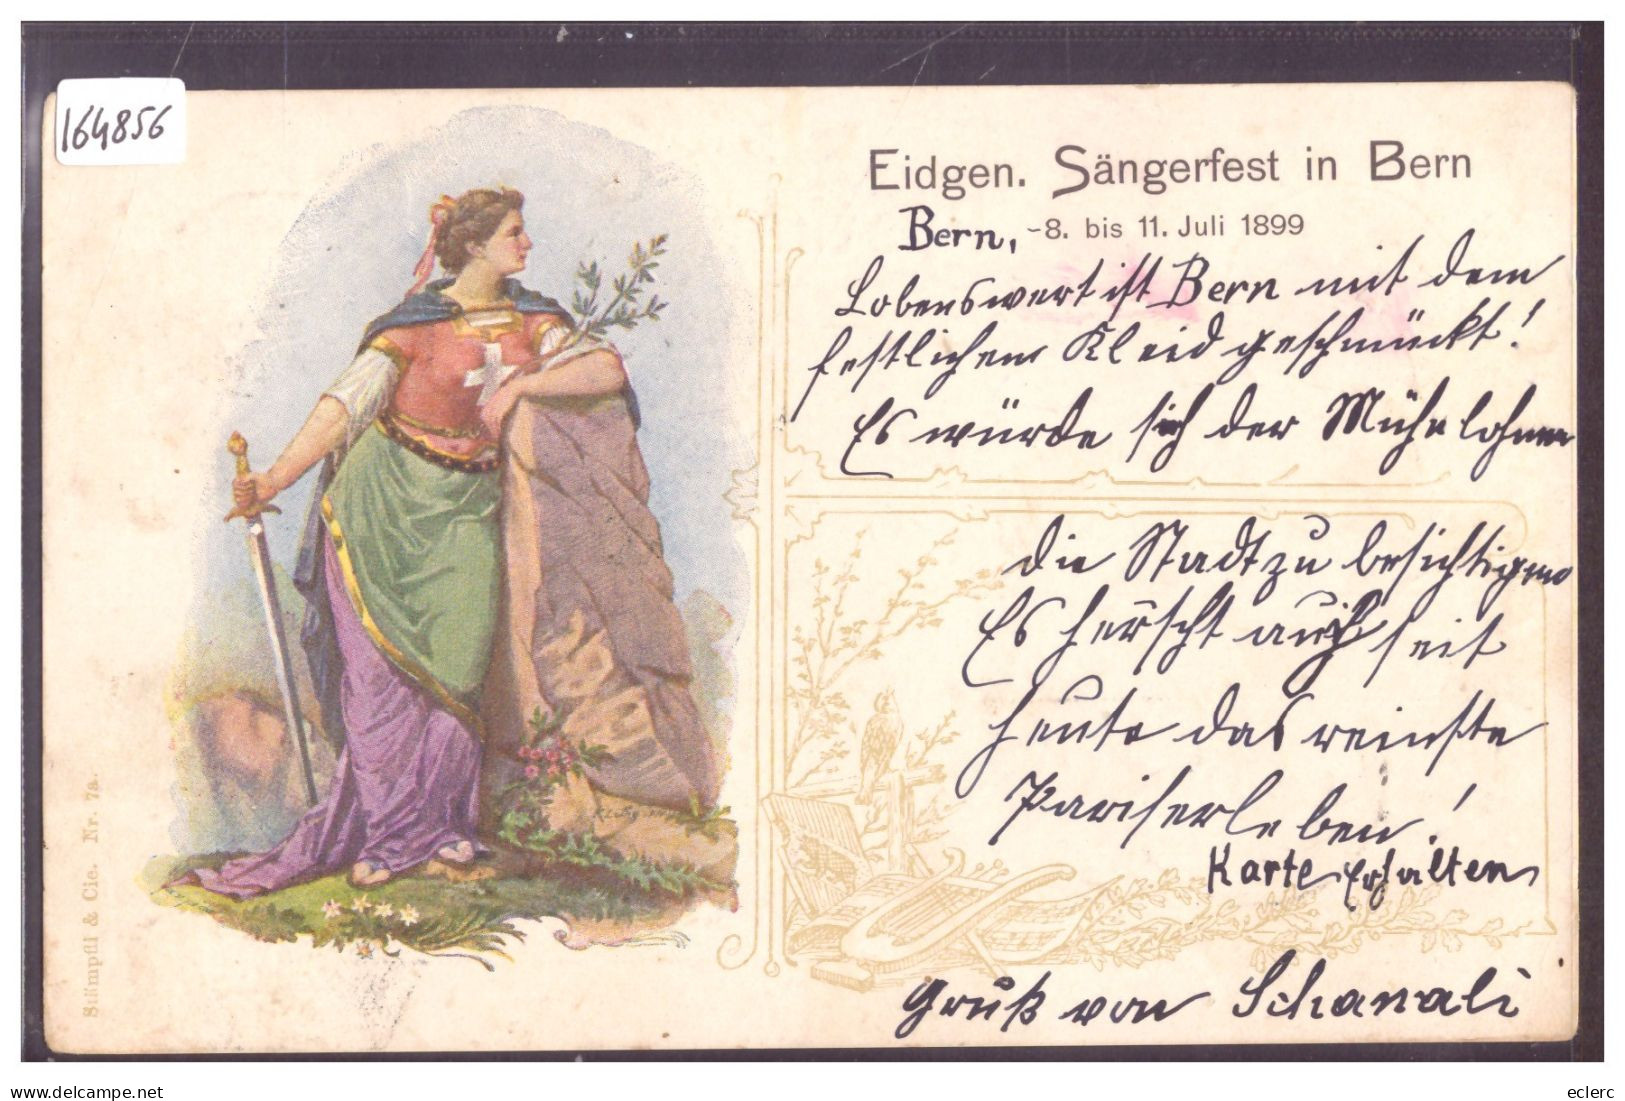 164856
Eidgen. Sängerfest in Bern
Bern, -8. bis 11. Juli 1899
Lobenswert ist Bern mit dem
festlichen Kleid geschmückt!
Es würde sich der Mühe lohnen
die Stadt zu besichtigen
Es herscht auch seit
heute das reinste
Pariserleben!
Karte erhalten
Gruß von Schanali
Stämpfli & Cie. Nr. 7a.
delcampe.net
eclerc